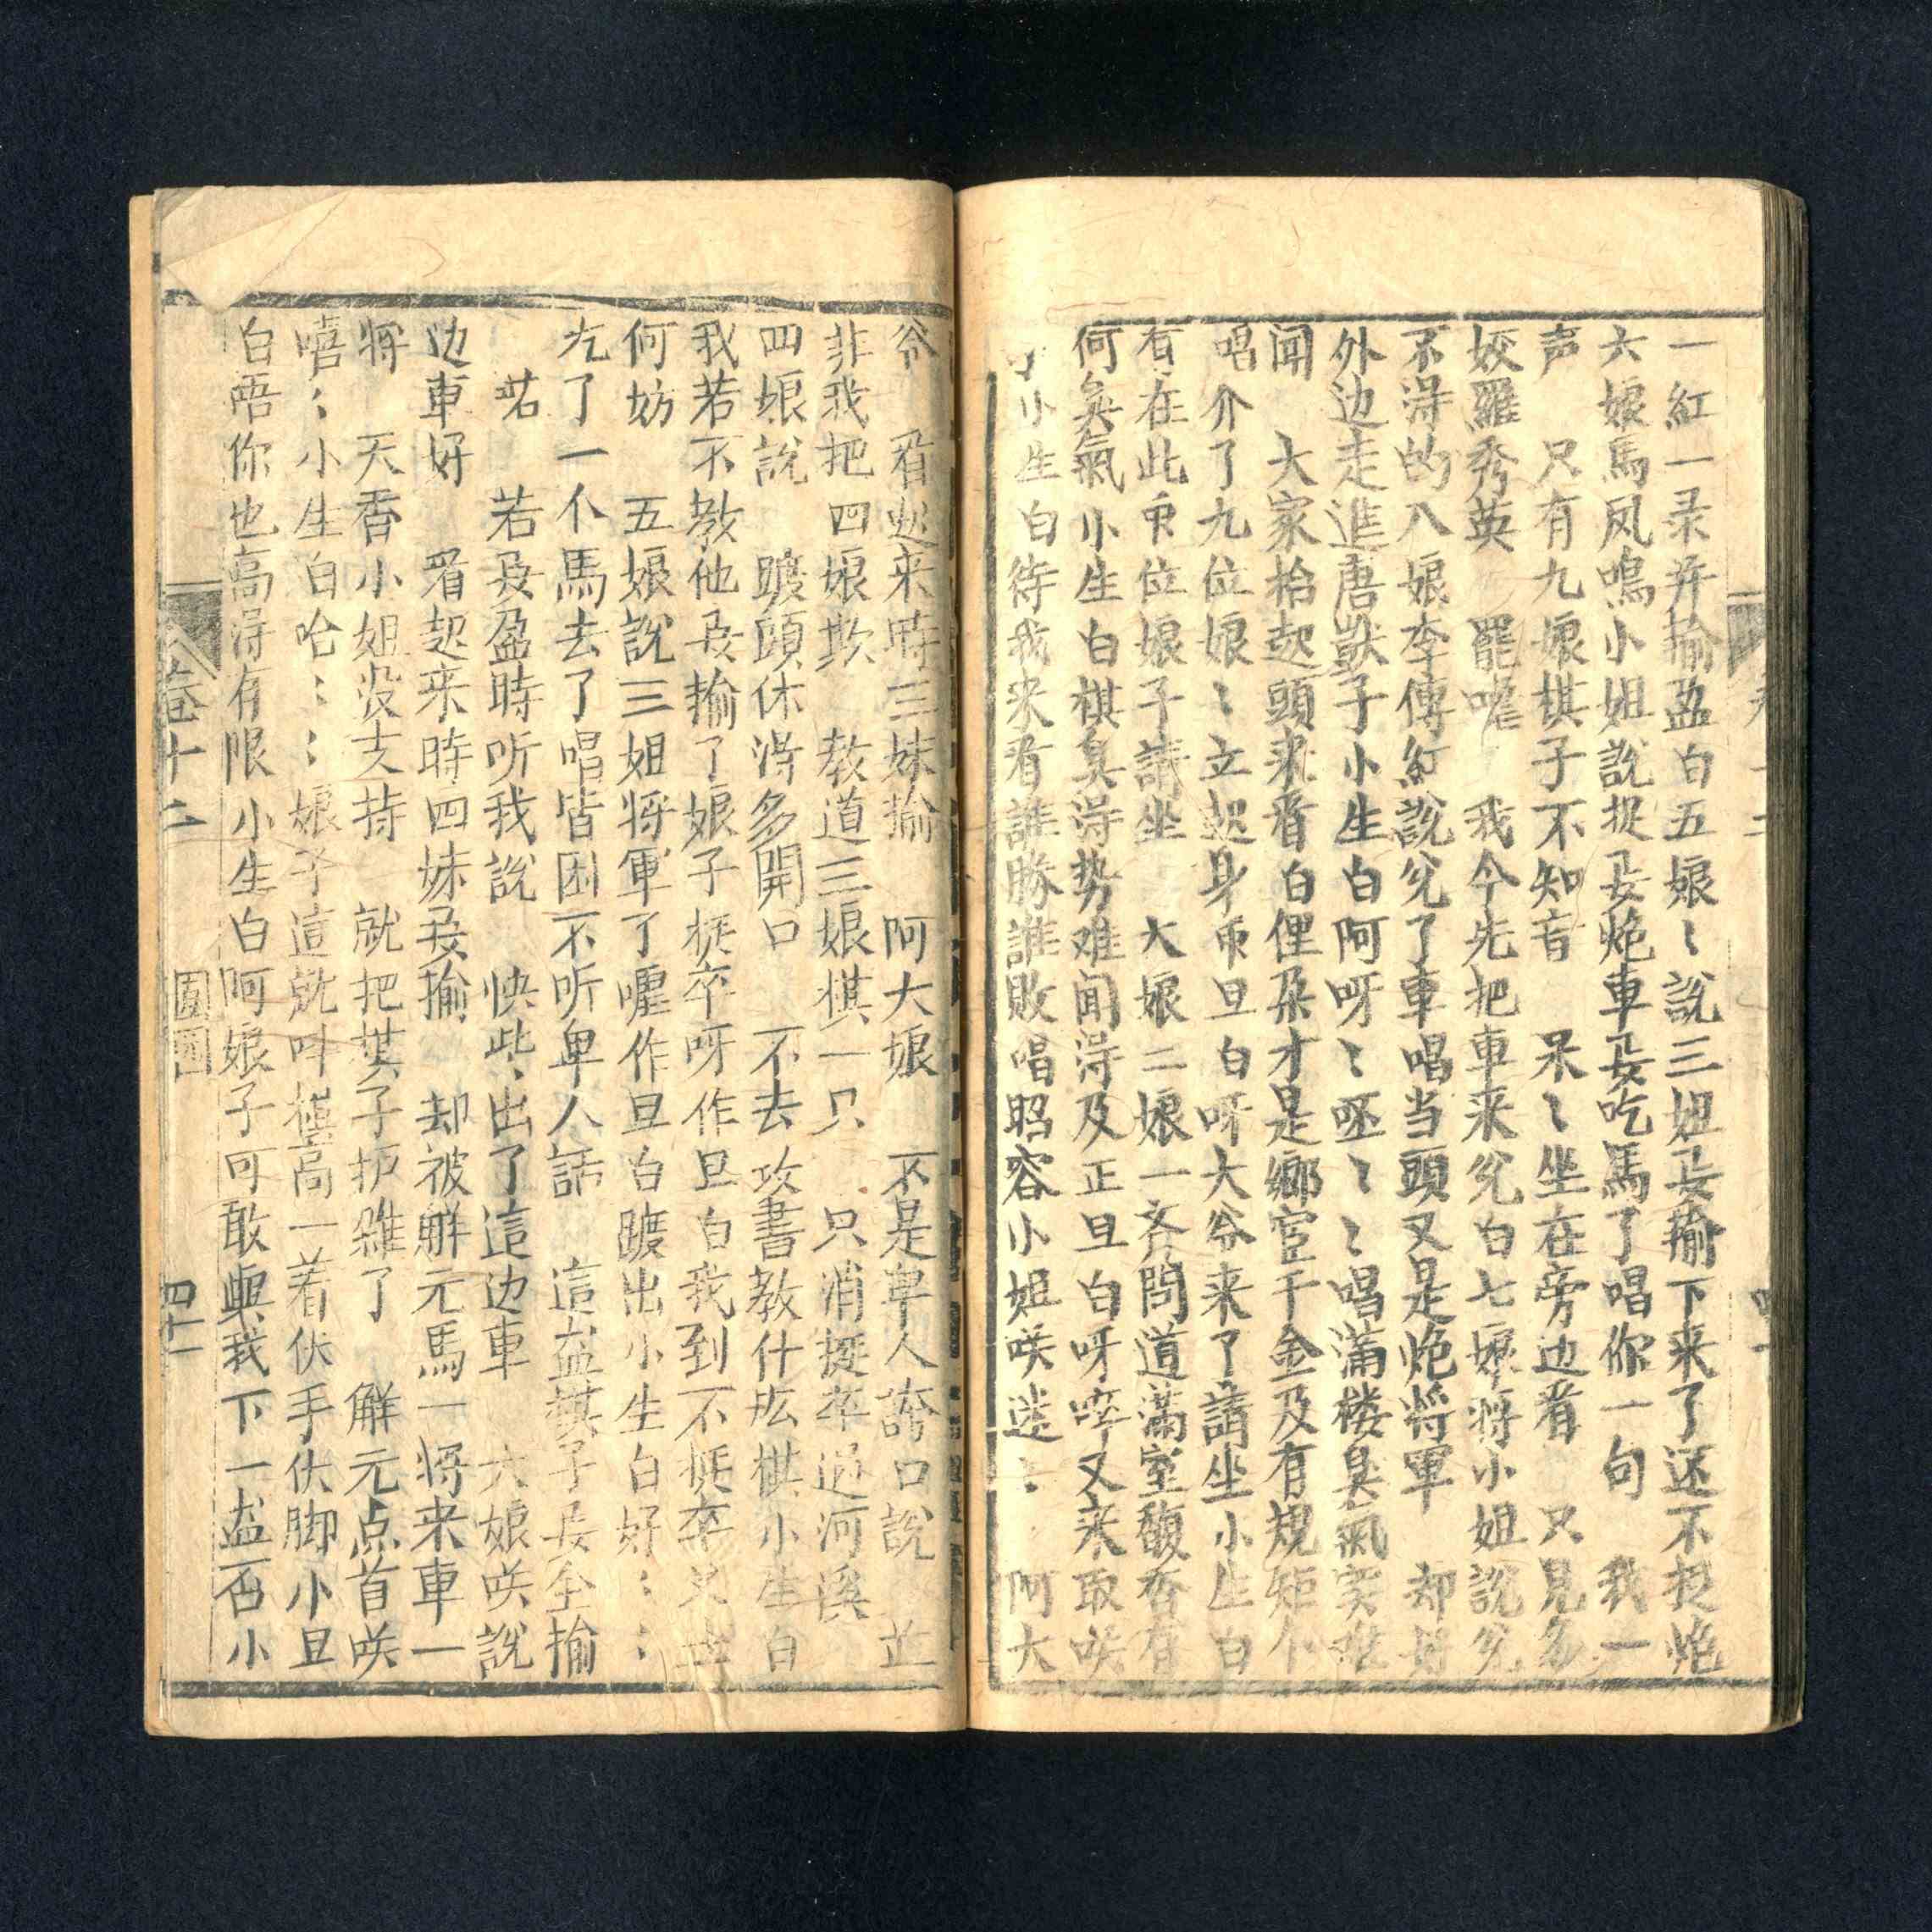 一紅一录并揄盈白五娘〻說三姐妟揄下来了还不捉炮
六娘馬凤鳴小姐說捉妟炮車妟吃馬了唱你一句 我一
声 只有九娘棋子不知音 呆〻坐在旁边看 只見多
姣羅秀英 罷嚄 我今先把車来兌白七娘将小姐說兌
不淂的八娘李傳紅說兌了車唱当頭又是炮将軍 却好
外边走進唐獃子小生白阿呀〻呸〻〻唱滿楼臭氣实难
闻 大家抬起頭来看白俚朶才是鄉宦千金及有規矩个
唱介了九位娘〻立起身帀旦白呀大爷来了請坐小生白
有在此帀位娘子請坐 大娘二娘一齐問道滿室馥香有
何臭氣小生白棋臭淂势难闻淂及正旦白呀啐又来取咲
小生白待我来看誰勝誰敗唱昭容小姐咲迷〻 阿大
爷 看起来時三妹揄 阿大娘 不是卑人誇口說 並
非我把四娘欺 教道三娘棋一只 只消挺卒過河溪
四娘說 躼頭休淂多開口 不去攻書教什庅棋小生白
我若不教他妟揄了娘子挺卒呀作旦白我到不挺卒又
何妨 五娘說三姐将軍了嚜作旦白躼出小生白好〻〻
吃了一个馬去了唱皆困不听卑人話 這盆棋子妟全揄
喏 若妟盈時听我說 快些出了這边車 六娘咲說
边車好 看起来時四妹妟揄 却被觧元馬一将来車一
将 天香小姐没支持 就把棋子护雜了 觧元点首咲
嘻〻小生白哈〻〻娘子這就呌極高一着伏手伏脚小旦
白唔你也高淂有限小生白阿娘子可敢與我下一盆否小
卷十二 園園 四十一